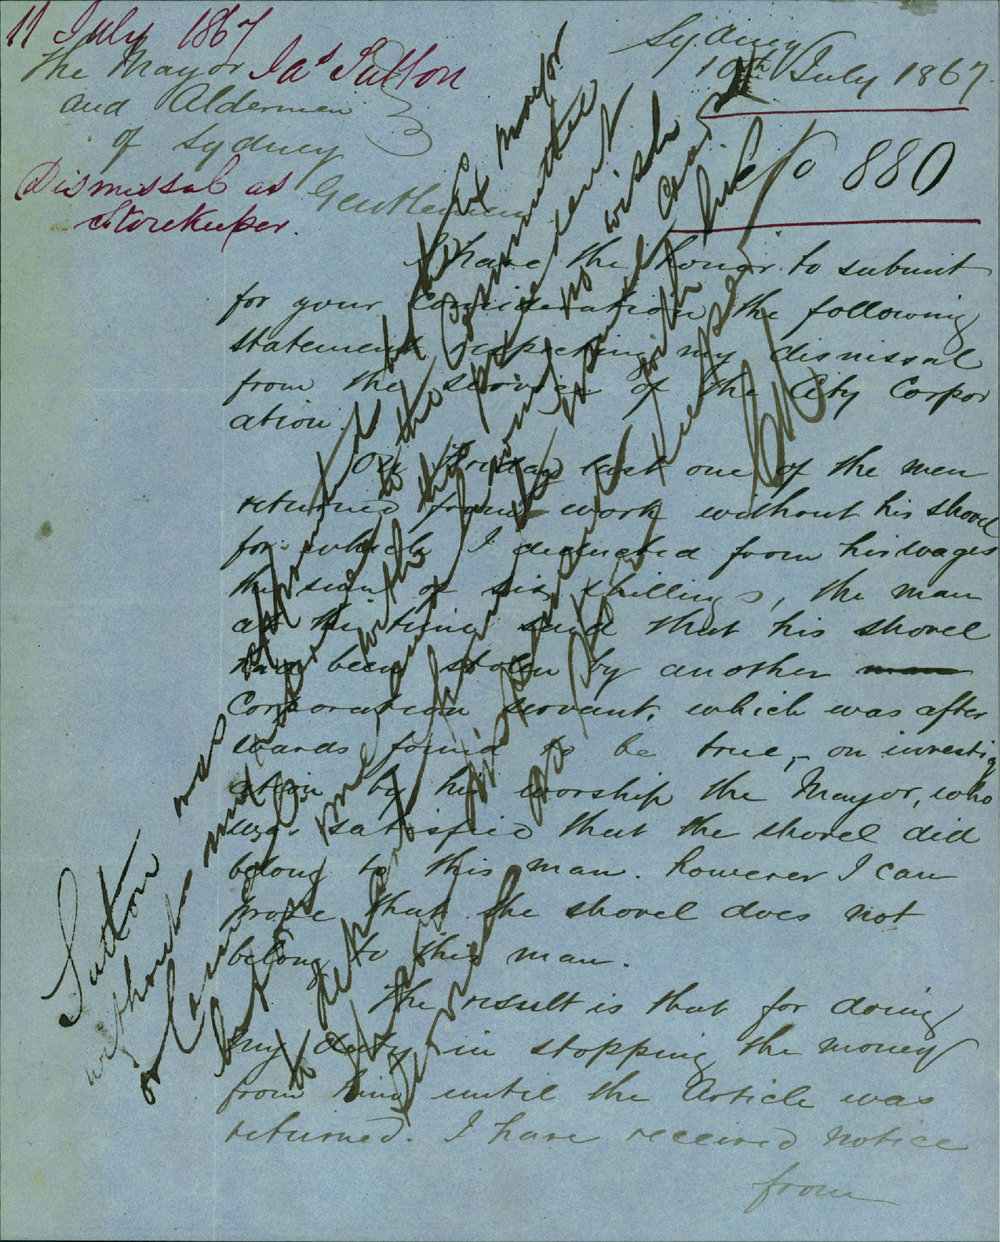 11 July 1867
Jas Sutton
The Mayor
and Aldermen
of Sydney
Dismissal as
Storekeeper.
Sydney
10th July 1867
No 880
Gentlemen
I have the honor to submit
for your consideration the following
statement respecting my dismissal
from the service of the City Corpor
ation.
On Friday last one of the men
returned from work without his shovel
for which I deducted from his wages
the sum of six shillings, the man
at the time said that his shovel
had been stolen by another man
Corporation servant, which was after
wards found to be true, on investig
ation by his worship the Mayor, who
was satisfied that the shovel did
belong to this man. however I can
prove that the shovel does not
belong to this man.
The result is that for doing
my duty in stopping the money
from him until the Article was
returned. I have received notice
from
Sutton was appointed by the Mayor
without reference to the Committee
or Council with the
but me and having no wish
to
I have with him
as Store keeper